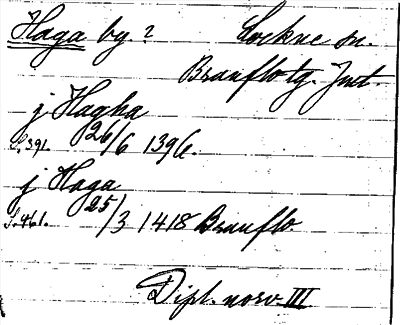 Haga by. ? Lockne sn.
Brunflo tg. Jmt.
j Hagha
S. 391. 26/6 1396.
j Haga
S. 461. 25/3 1418 Brunflo
Dipl. norv. III